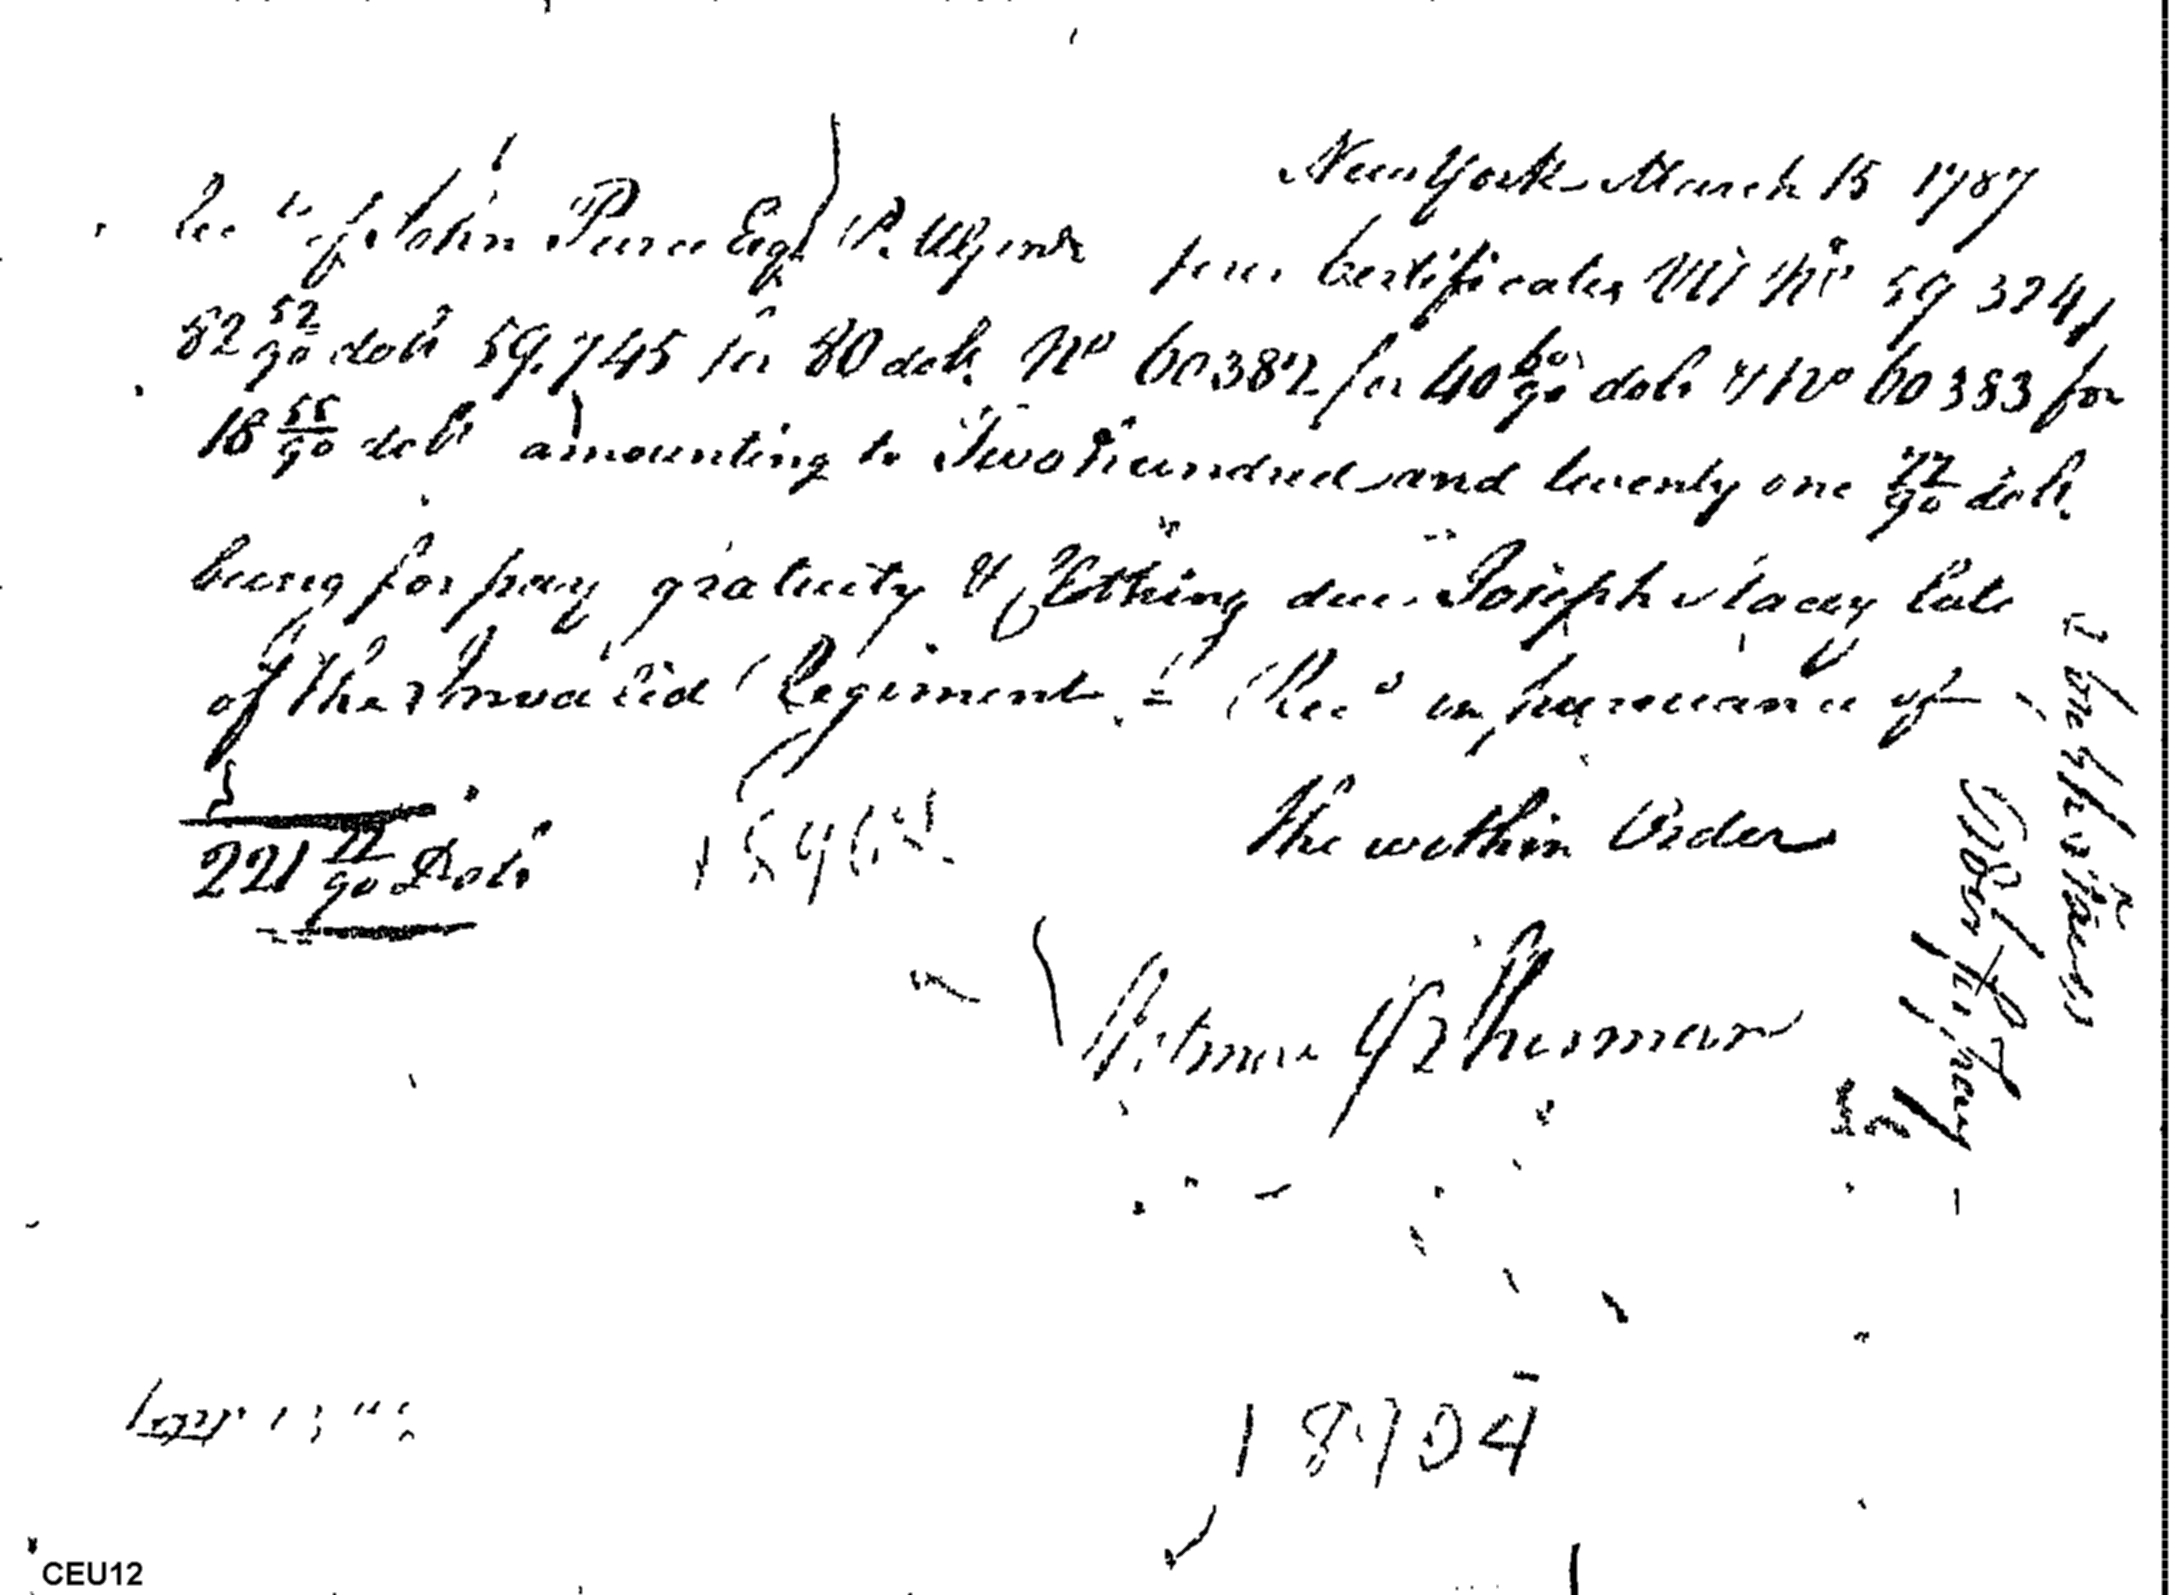 New York March 15 1787
Rec.d of John Pierce Esqr P. M Genl four Certificates Viz No 59 324 f
82 52/90 dolls 59.745 for 80 dolls. No 60382 for 40 60/90 dolls & No 60383 for
18 55/90 dolls amounting to Two hundred and twenty one 77/90 dolls.
being for pay gratuity & Clothing due Joseph Stacey late
of the Invalid Regiment. = Recd in pursuance of
the within Order
221 77/90 Dolls
18704
CEU12